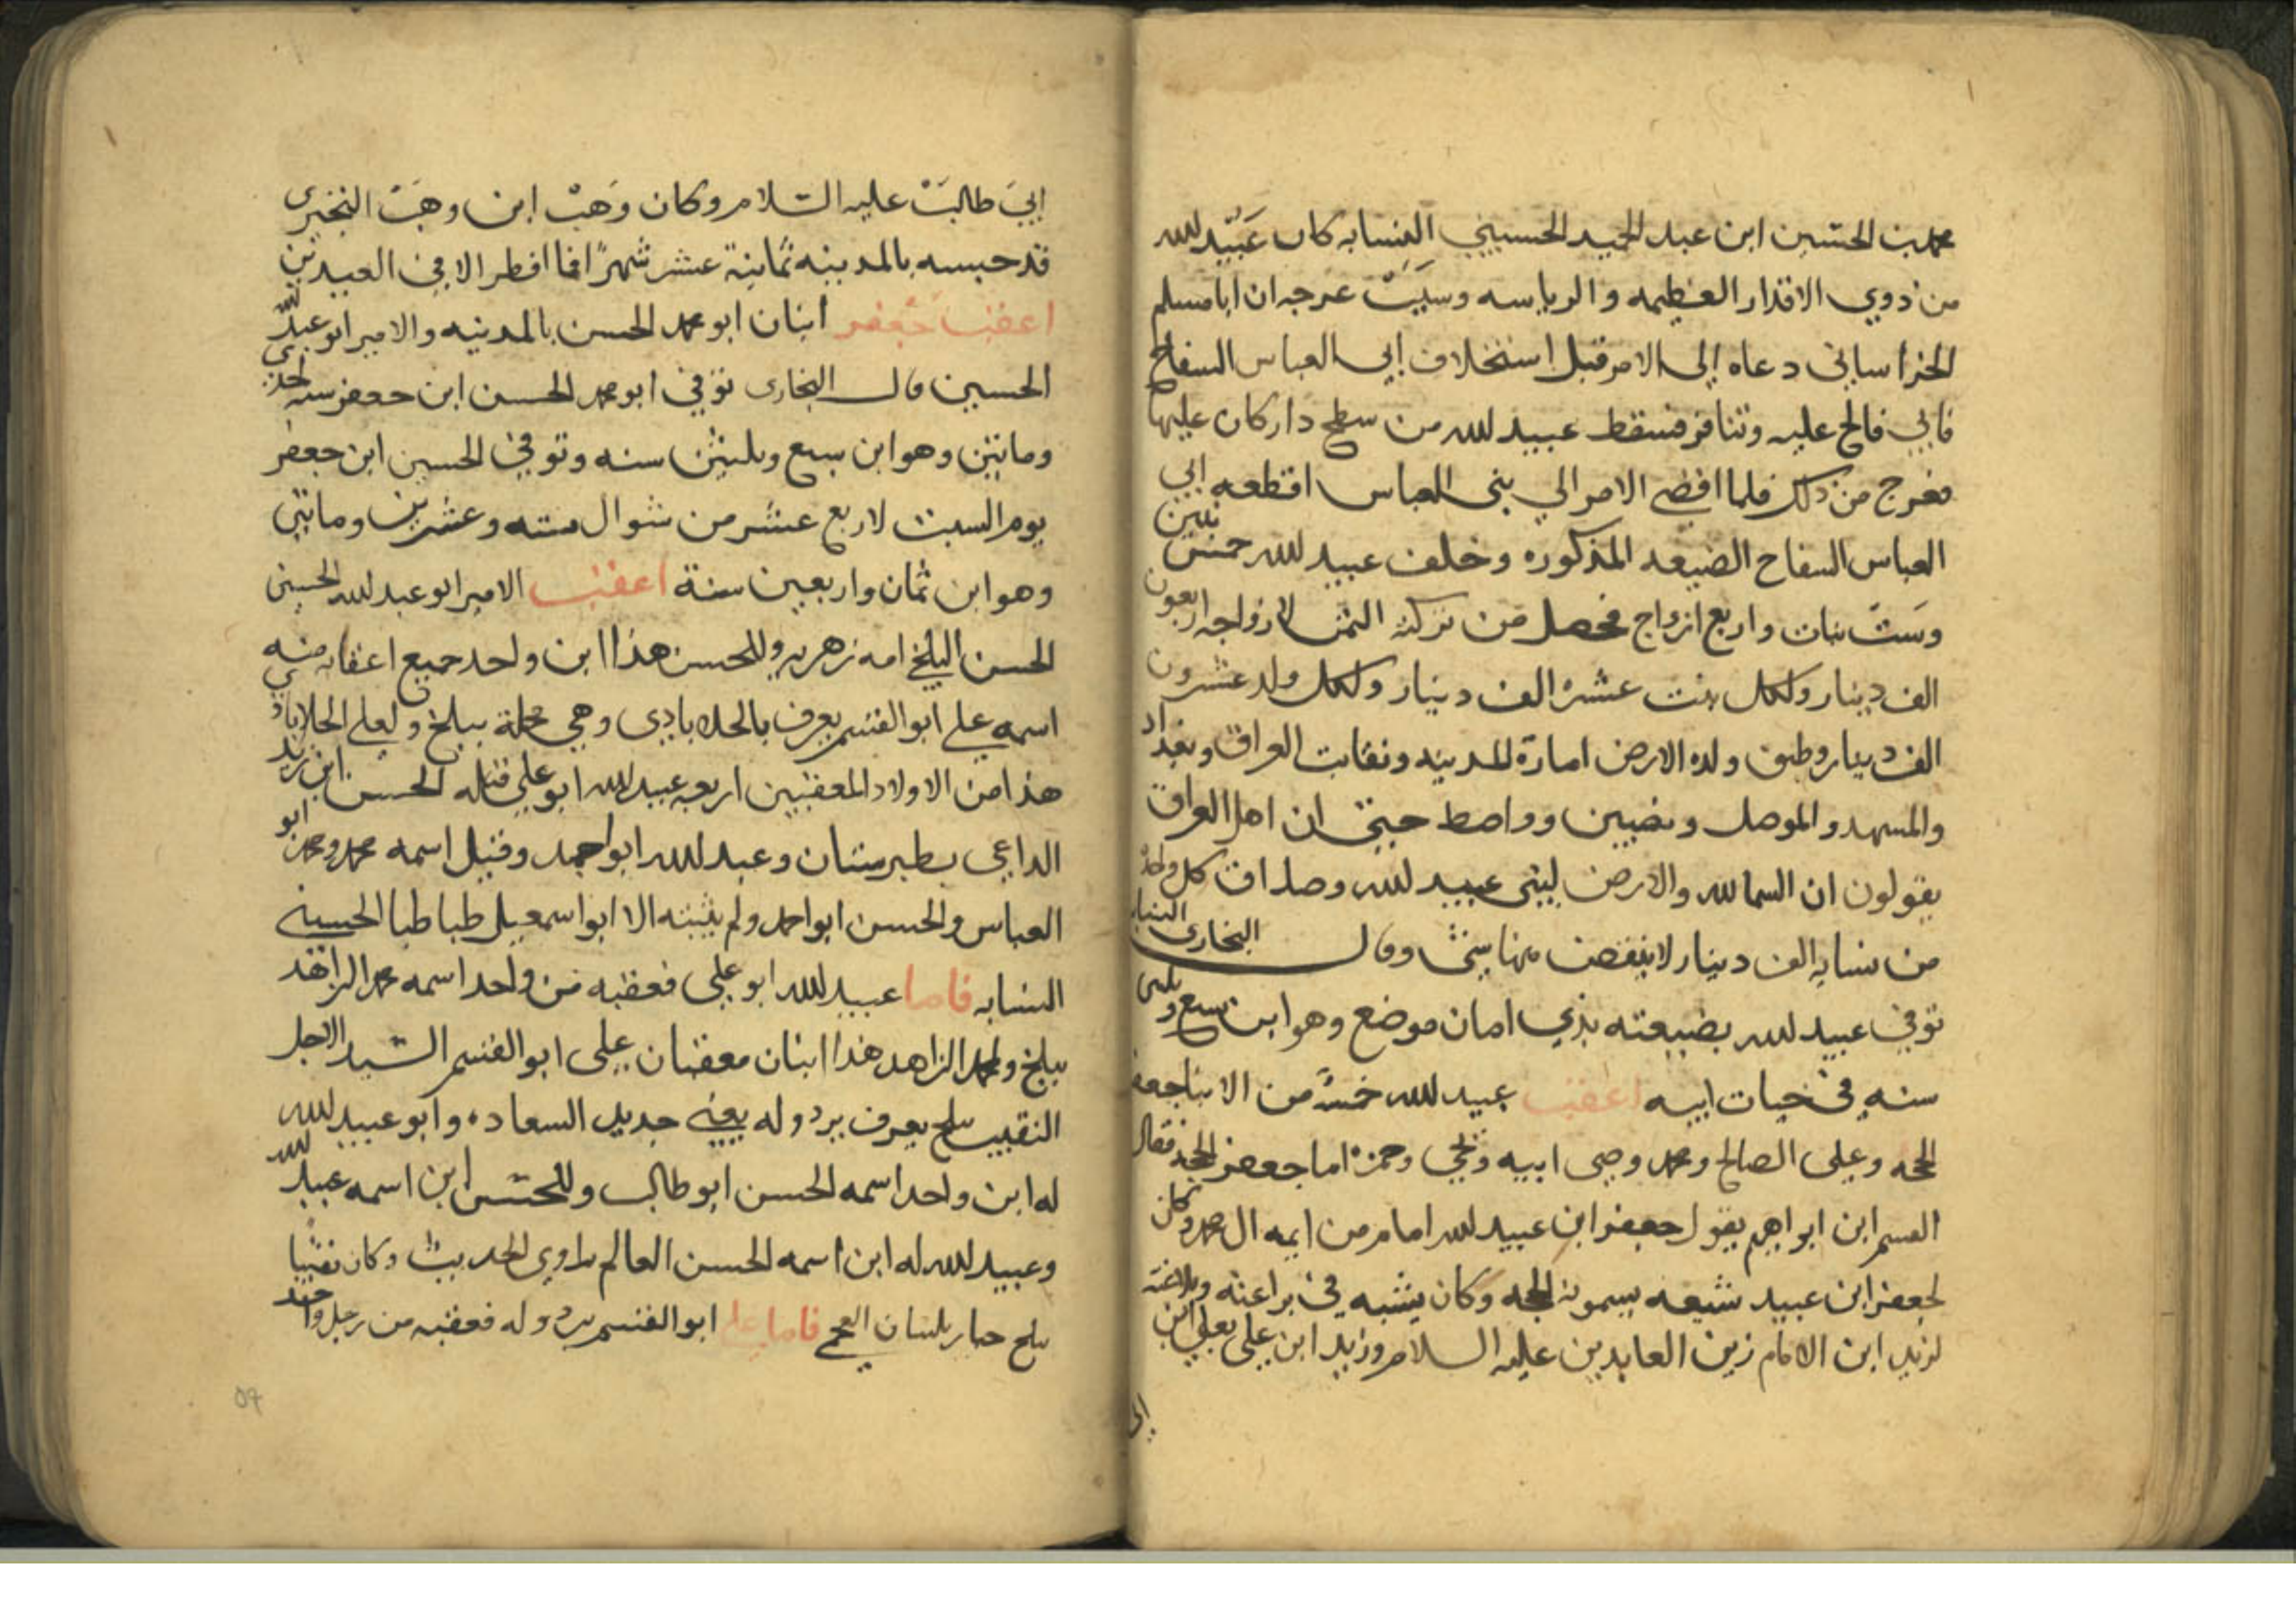 محمد بن الحسين ابن عبد الحميد الحسيني النسابه كان عبيد لله
من ذوي الاقدار العظيمه والرياسه وسبب عرجه ان ابا مسلم
الخراساني دعاه إلى الامر قبل استخلاف إبي العباس السفاح
فابي فالح عليه وتنافر فسقط عبيد لله من سطح دار كان عليها
فعرج من ذلك فلما افضى الامر الي بني العباس اقطعه ابي
العباس السفاح الضيعه المذكوره وخلف عبيد لله خمس بنين
وست بنات واربع ازواج فحصل من تركته الثمن لازواجه اربعون
الف دينار ولكل بنت عشرة الف دينار ولكل ولد عشرون
الف دينار وطبق ولده الارض امارة المدينه ونقابت العراق وبغداد
والمشهد والموصل ونصيبين وواصط حتى ان اهل العراق
يقولون ان السما لله والارض لبني عبيد لله وصداق كل واحدة
من نسايه الف دينار لا ينقص منها شيئ وقال البخارى النسابه
توفي عبيد لله بضيعته بذي امان موضع وهو ابن سبع وثلثين
سنه في حيات ابيه اعقب عبيد لله خمسة من الابنا جعفر
الحجه وعلى الصالح ومحمد وصى ابيه ويحيى وحمزه اما جعفر الحجه فقال
القسم ابن ابراهيم يقول جعفر ابن عبيد لله امام من ايمه ال محمد وكان
لجعفر ابن عبيد شيعه يسمونه الحجه وكان يشبه في براعته وبلاغته
لزيد ابن الامام زين العابدين عليه السلام وزيد ابن علي بعلي ابن
إبي
إبي طالب عليه السلام وكان وهب ابن وهب البختري
قد حبسه بالمدينه ثمانية عشر شهرًا فما افطر الا في العيدين
اعقب جعفر ابنان ابو محمد الحسن بالمدينه والامير ابو عبد لله
الحسين قال البخارى توفي ابو محمد الحسن ابن جعفر سنه احدى
وماتين وهو ابن سبع وثلثين سنه وتوفي الحسين ابن جعفر
يوم السبت لاربع عشر من شوال سته وعشرين وماتين
وهو ابن ثمان واربعين سنة اعقب الامير ابو عبد لله الحسين
الحسن البلخي امه زهريه وللحسن هذا ابن واحد جميع اعقابه منه
اسمه علي ابو القسم يعرف بالجلابادي وهي محلة ببلخ ولعلي الجلابادي
هذا من الاولاد المعقبين اربعه عبيد لله ابو علي قتله الحسن ابن زيد
الداعي بطبرستان وعبد لله ابو احمد وقيل اسمه محمد ومحمد ابو
العباس والحسن ابو احمد ولم يثبته الا ابو اسمعيل طباطبا الحسيني
النسابه فاما عبيد لله ابو علي فعقبه من واحد اسمه محمد الزاهد
ببلخ ولمحمد الزاهد هذا ابنان معقبان علي ابو القسم السيد الاجل
النقيب ببلخ يعرف بردوله يعني جديد السعاده وابو عبيد لله
له ابن واحد اسمه الحسن ابو طالب وللحسن ابن اسمه عبيد لله
وعبيد لله له ابن اسمه الحسن العالم راوي الحديث وكان نقيبا
ببلخ بلسان العجم فاما علي ابو القسم بردوله فعقبه من رجل واحد
٥٩